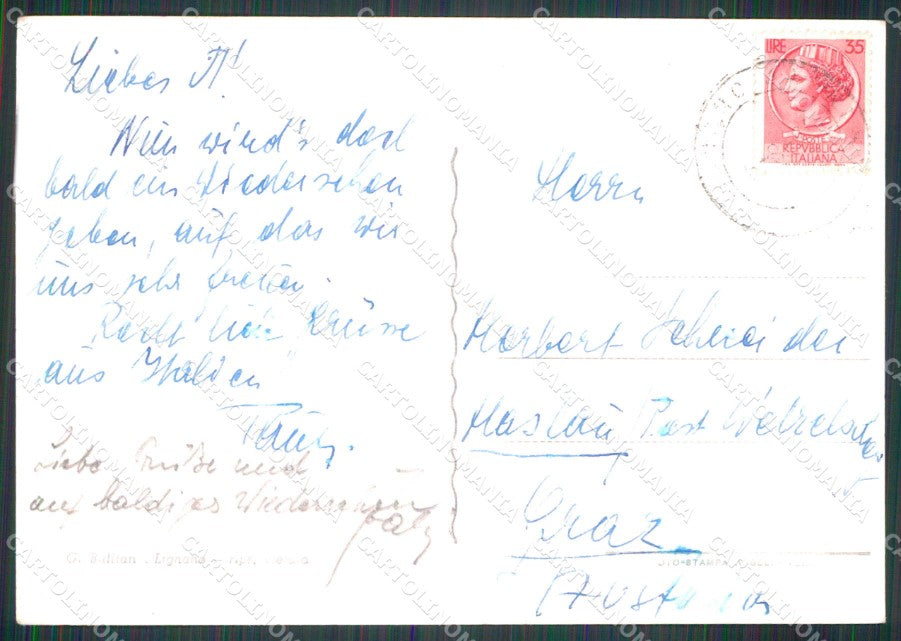 Liebes
Nun wird's doch
bald ein Wiedersehen
geben, auf das wir
uns sehr freuen.
Recht liebe Grüsse
aus Italien!
Liebe Grüße und
auf baldiges Wiedersehen
G.
Lignano
LIRE 35
POSTE
REPVBBLICA
ITALIANA
Herrn
Herbert Schneider
Haslau Post
Graz
CARTOLINOMANIA